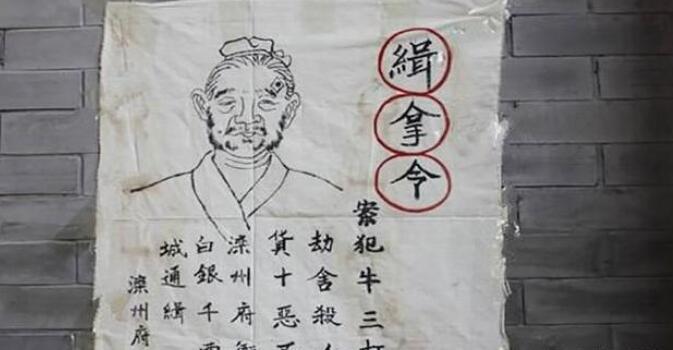 緝拿令
案犯牛三打
劫舍殺人
貨十惡
滦州府衙
白銀千兩
城通緝
滦州府